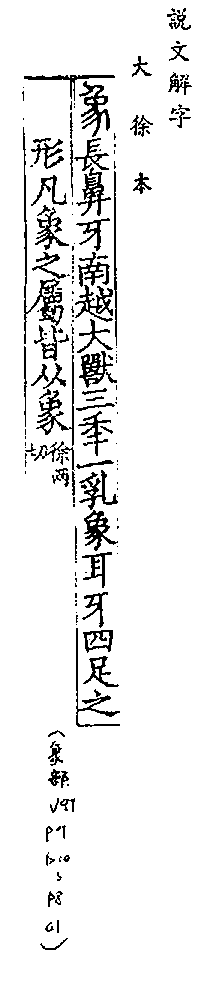 說文解字
大徐本
象長鼻牙南越大獸三秊一乳象耳牙四足之
形凡象之屬皆从象徐兩切
(象部